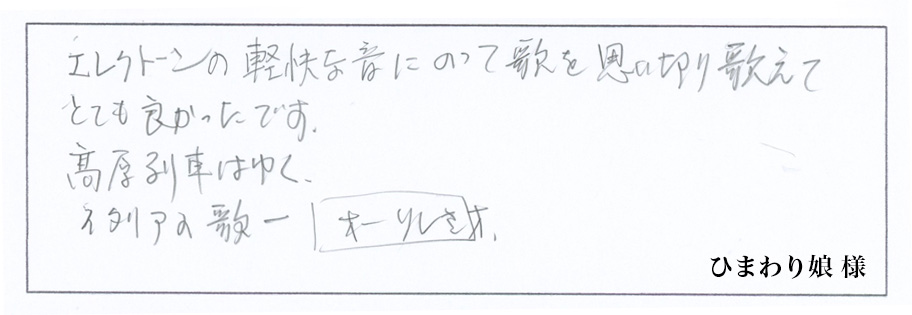 エレクトーンの軽快な音にのって歌を思い切り歌えて
とても良かったです。
高原列車はゆく、
イタリアの歌ー オーソレミオ.
ひまわり娘 様